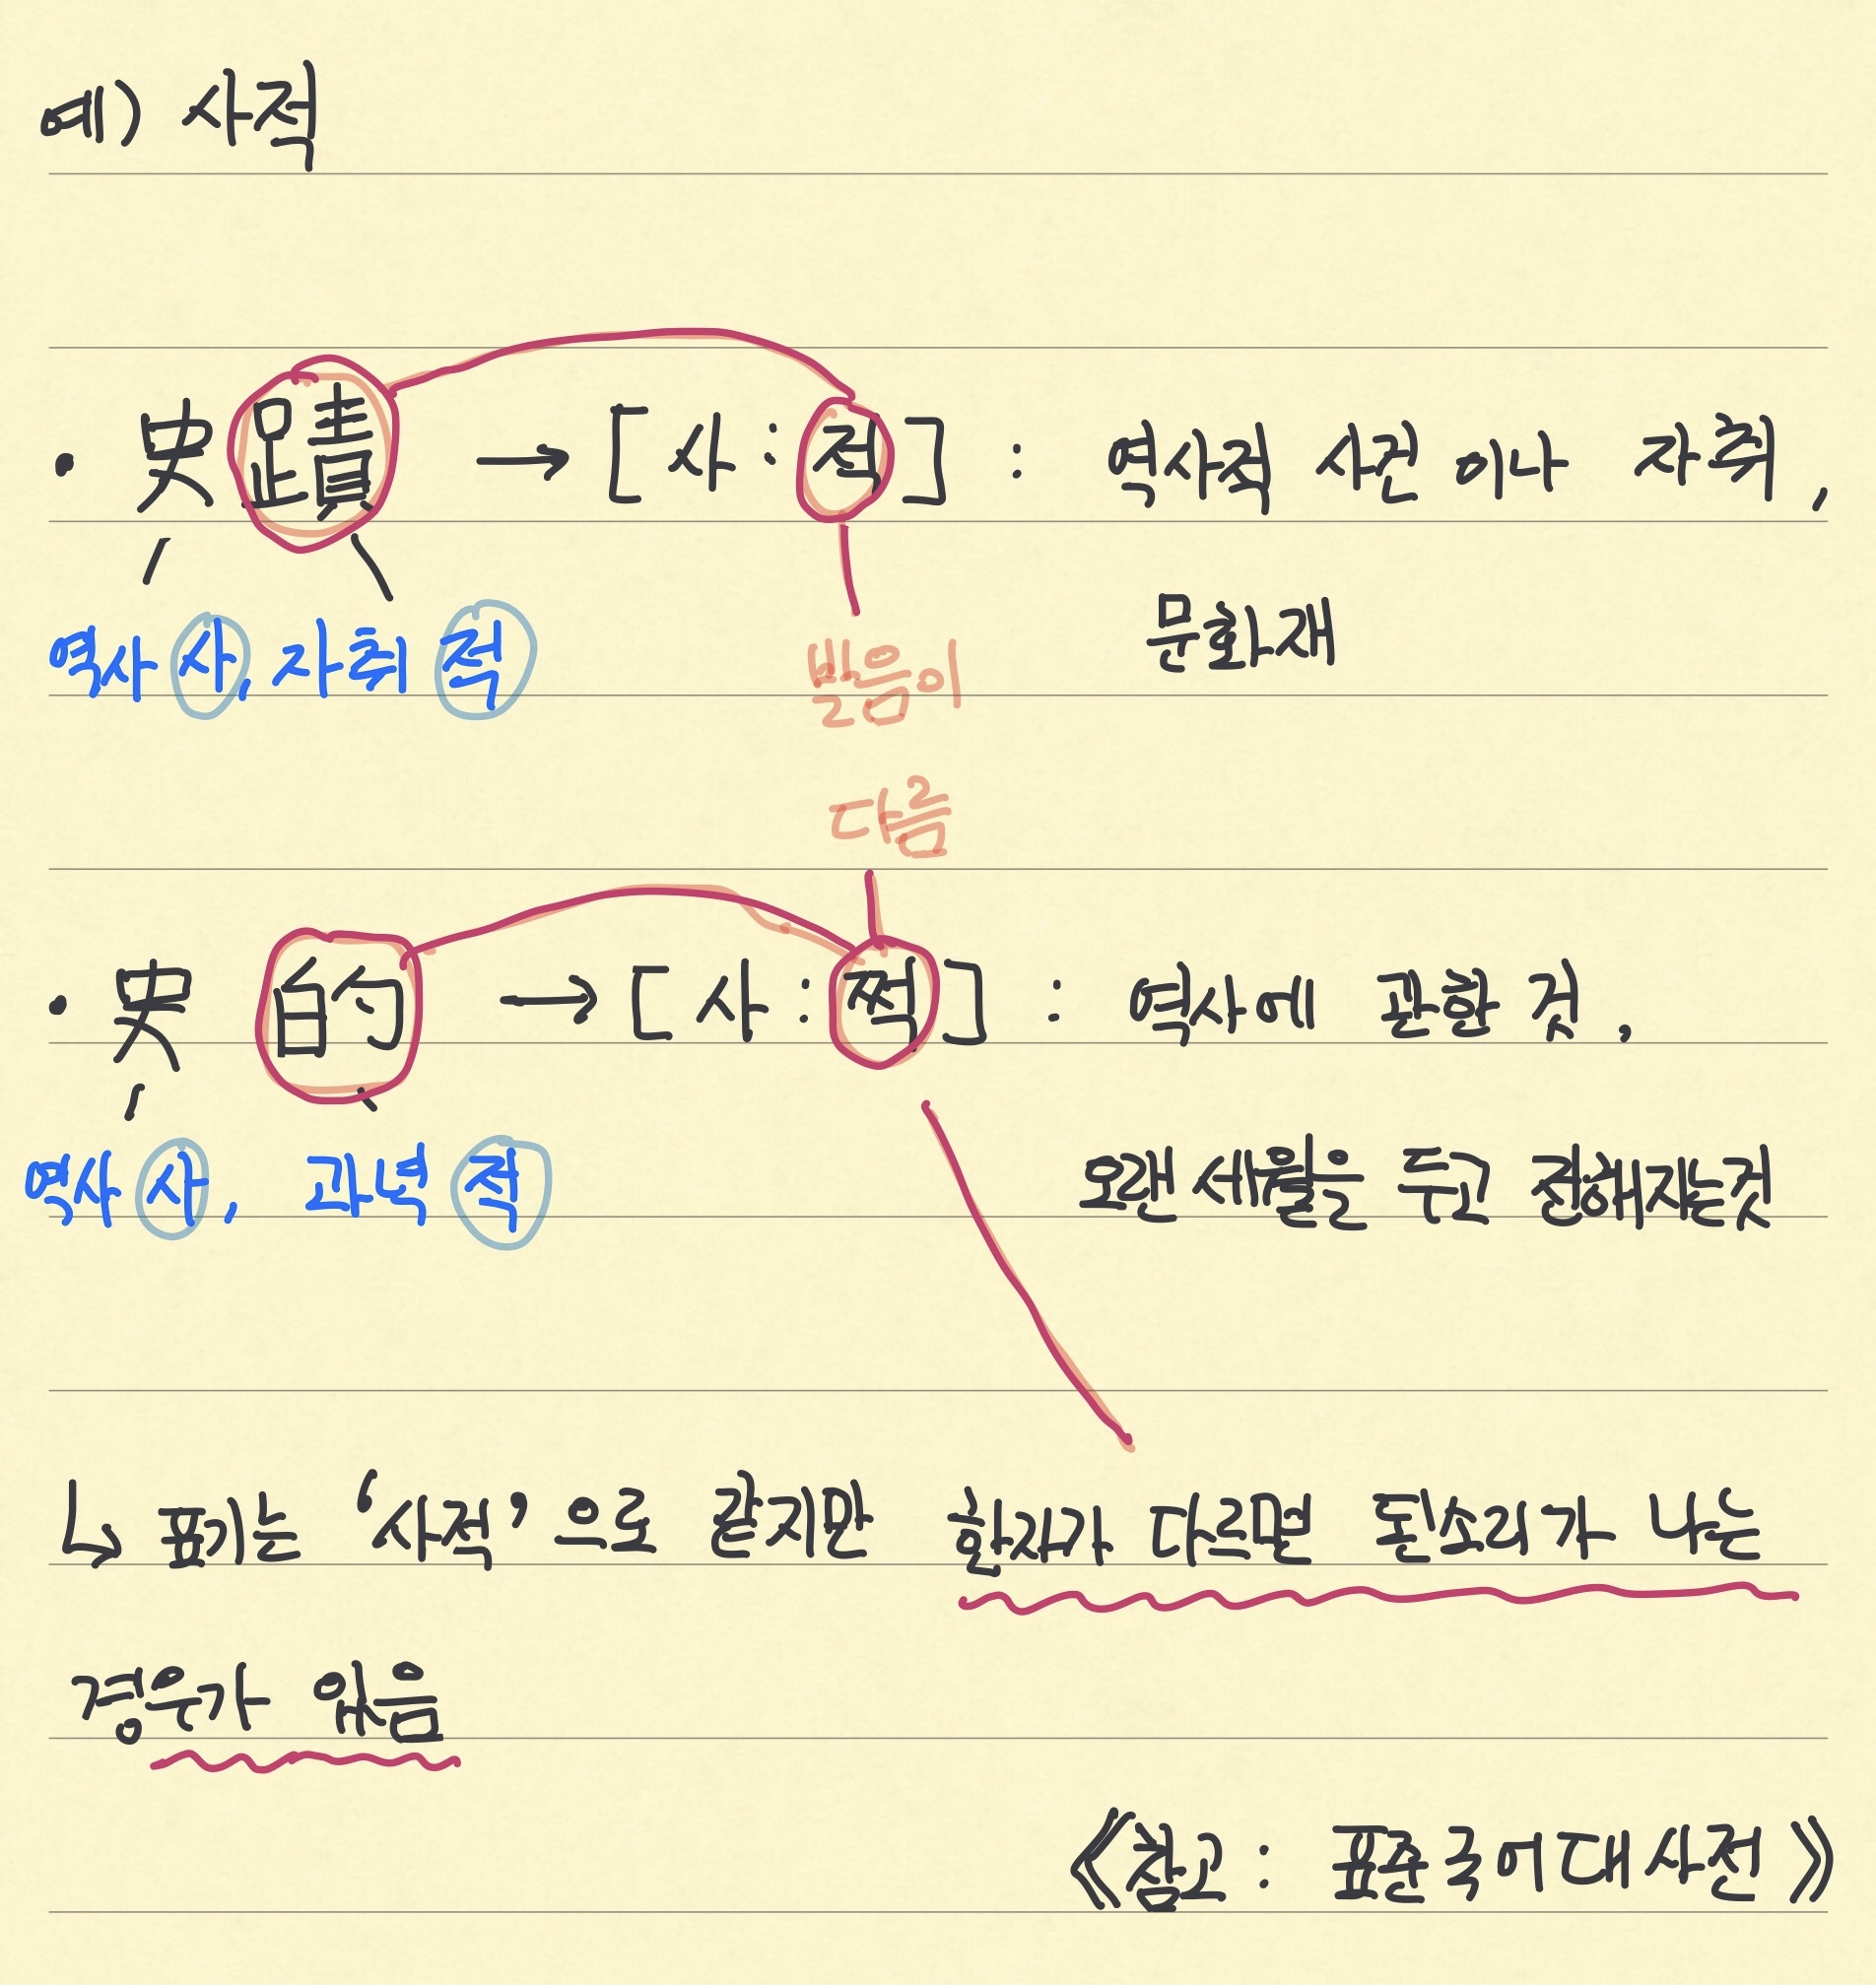 예) 사적
· 史蹟 → [사:적] : 역사적 사건 이나 자취,
역사 사, 자취 적
발음이
문화재
다름
· 史的 → [사:쩍] : 역사에 관한 것,
역사 사, 과녁 적
오랜 세월을 두고 전해지는것
↳ 표기는 '사적'으로 같지만 한자가 다르면 된소리가 나는
경우가 있음
《참고 : 표준국어대사전》